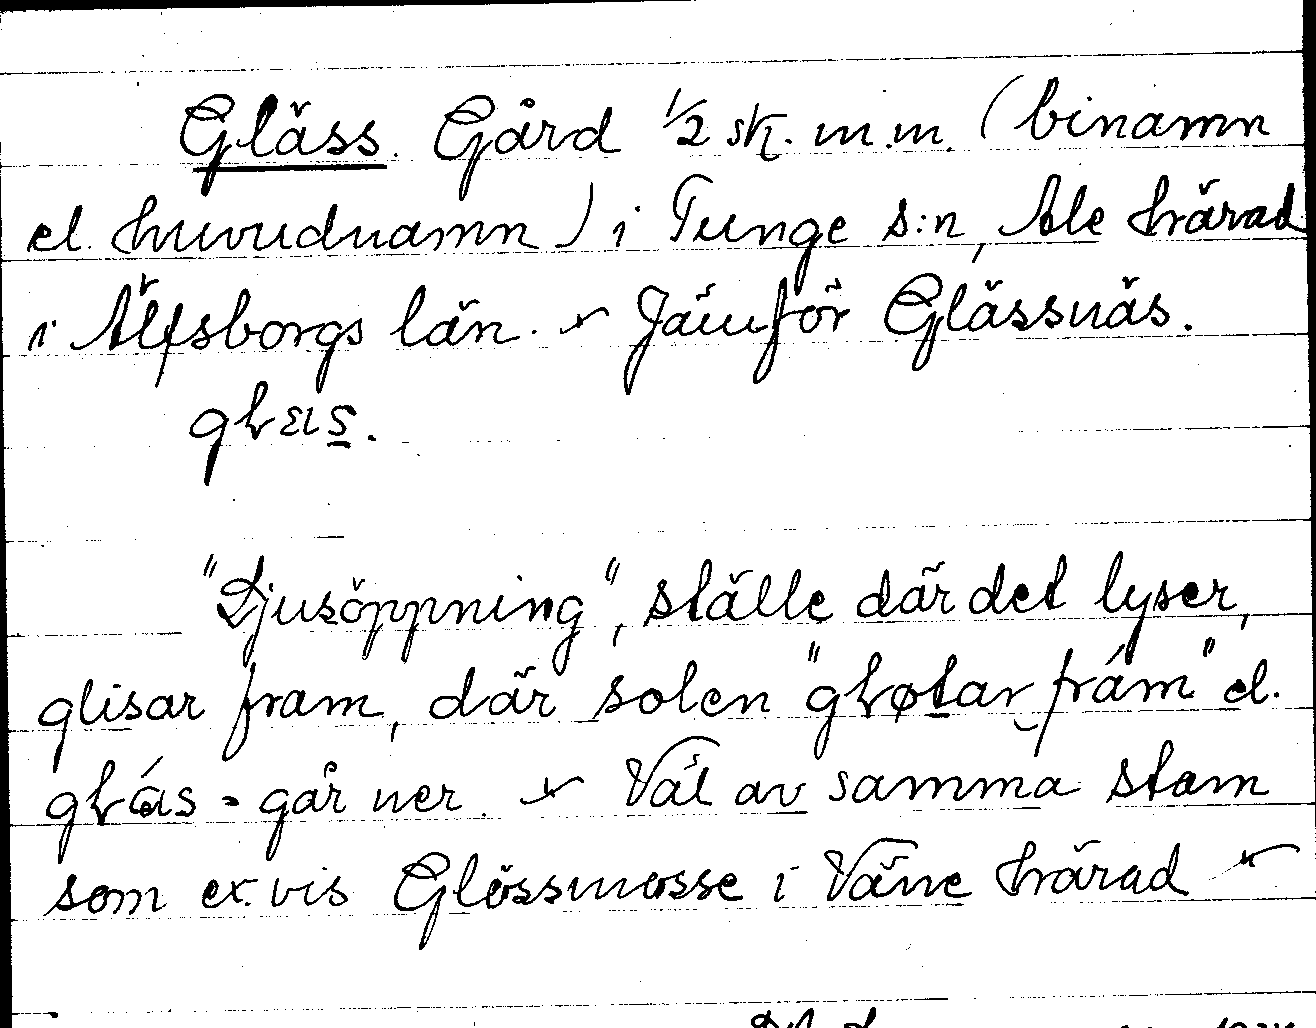 Gläss. Gård 1/2 sk. m.m. (binamn
el. huvudnamn) i Tunge s:n, Ale härad
i Älfsborgs län. Jämför Glässnäs.
"Ljusöppning", ställe där det lyser,
glisar fram, där solen fram" el.
går ner. Väl av samma stam
som ex.vis Glössmosse i Väne härad